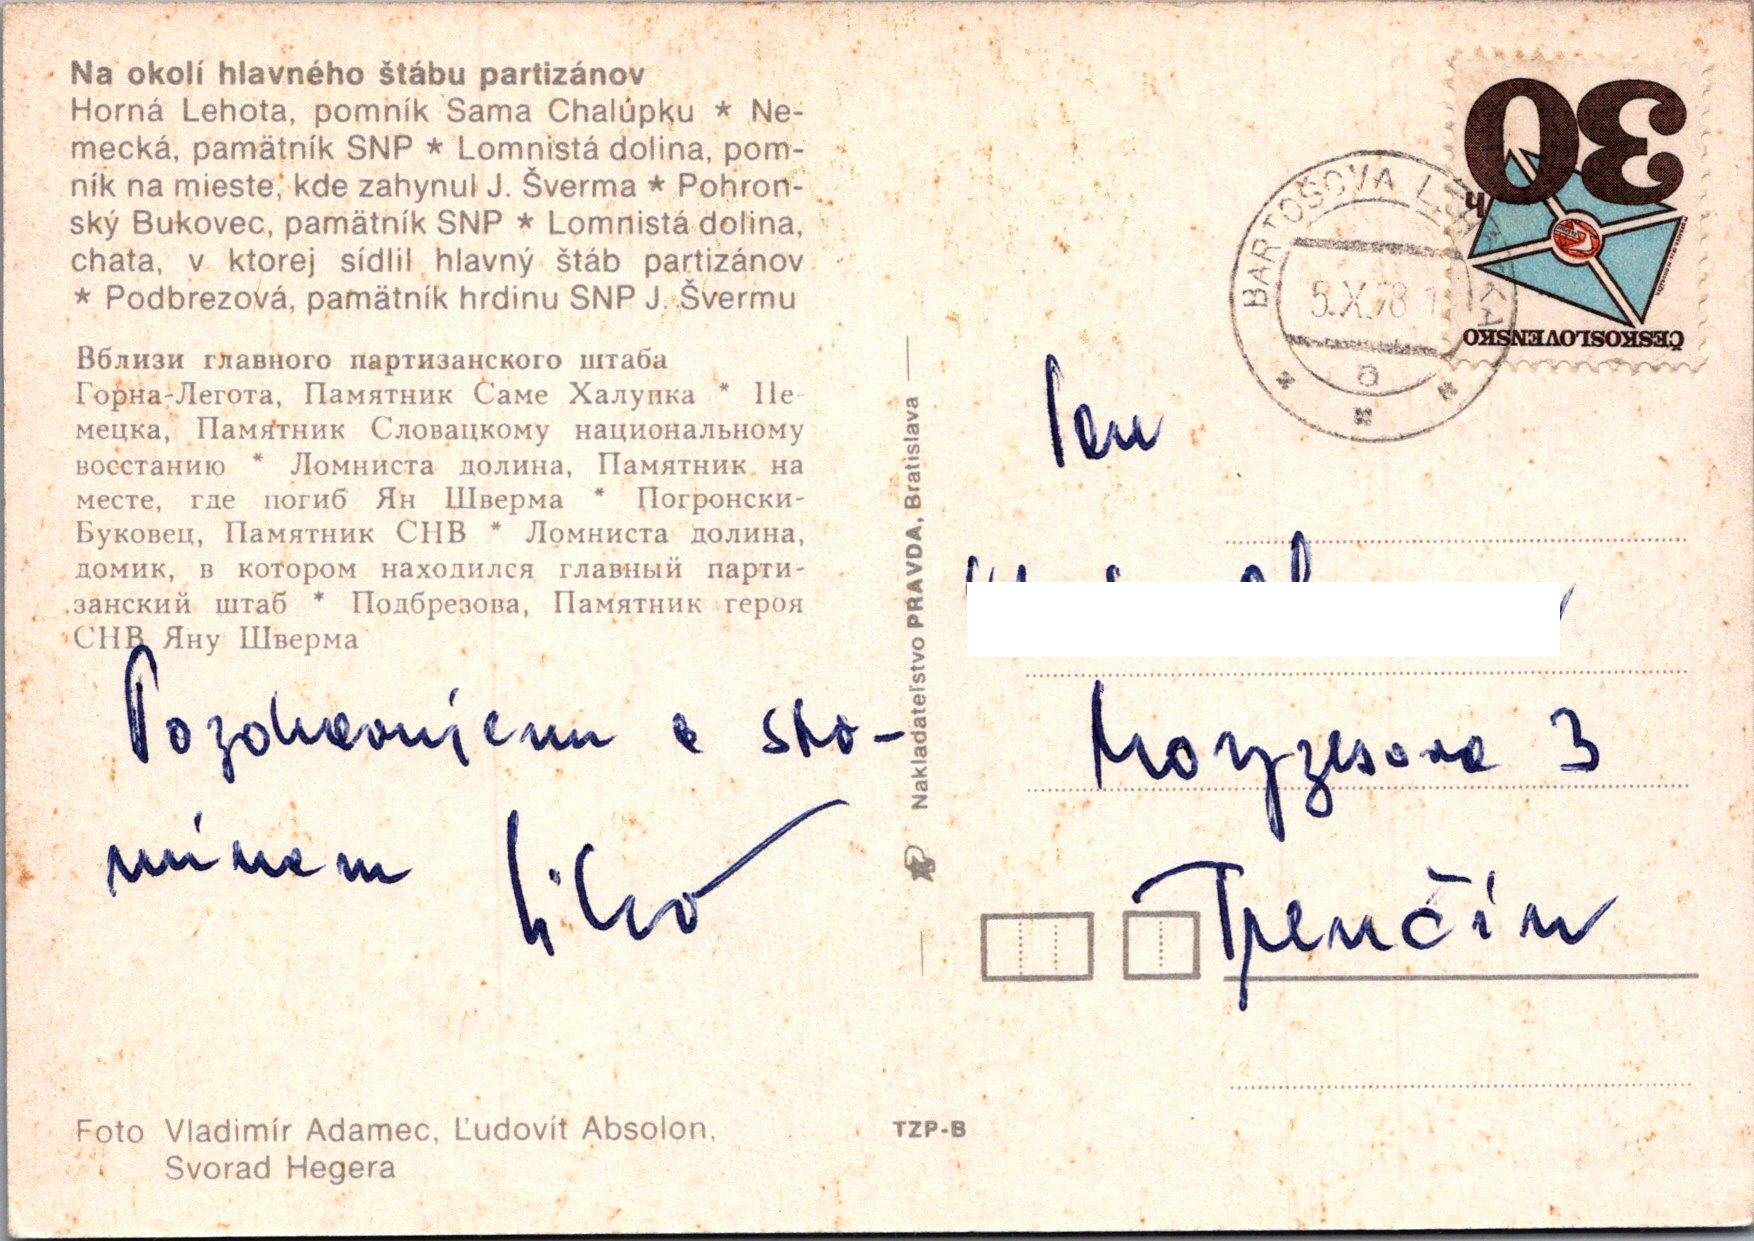 Na okolí hlavného štábu partizánov
Horná Lehota, pomník Sama Chalúpku * Ne-
mecká, pamätník SNP * Lomnistá dolina, pom-
ník na mieste, kde zahynul J. Šverma * Pohron-
ský Bukovec, pamätník SNP * Lomnistá dolina,
chata, v ktorej sídlil hlavný štáb partizánov
* Podbrezová, pamätník hrdinu SNP J. Švermu
Вблизи главного партизанского штаба
Горна-Легота, Памятник Саме Халупка * Не-
мецка, Памятник Словацкому национальному
восстанию * Ломниста долина, Памятник на
месте, где погиб Ян Шверма * Погронски-
Буковец, Памятник СНВ * Ломниста долина,
домик, в котором находился главный парти-
занский штаб * Подбрезова, Памятник героя
СНВ Яну Шверма
Pozdravujem a spo-
mínam
Foto Vladimír Adamec, Ľudovít Absolon,
Svorad Hegera
Nakladateľstvo PRAVDA, Bratislava
TZP-B
30
h
ČESKOSLOVENSKO
BARTOŠOVA
5.X.78
a
Pán
Moyzesova 3
Trenčín